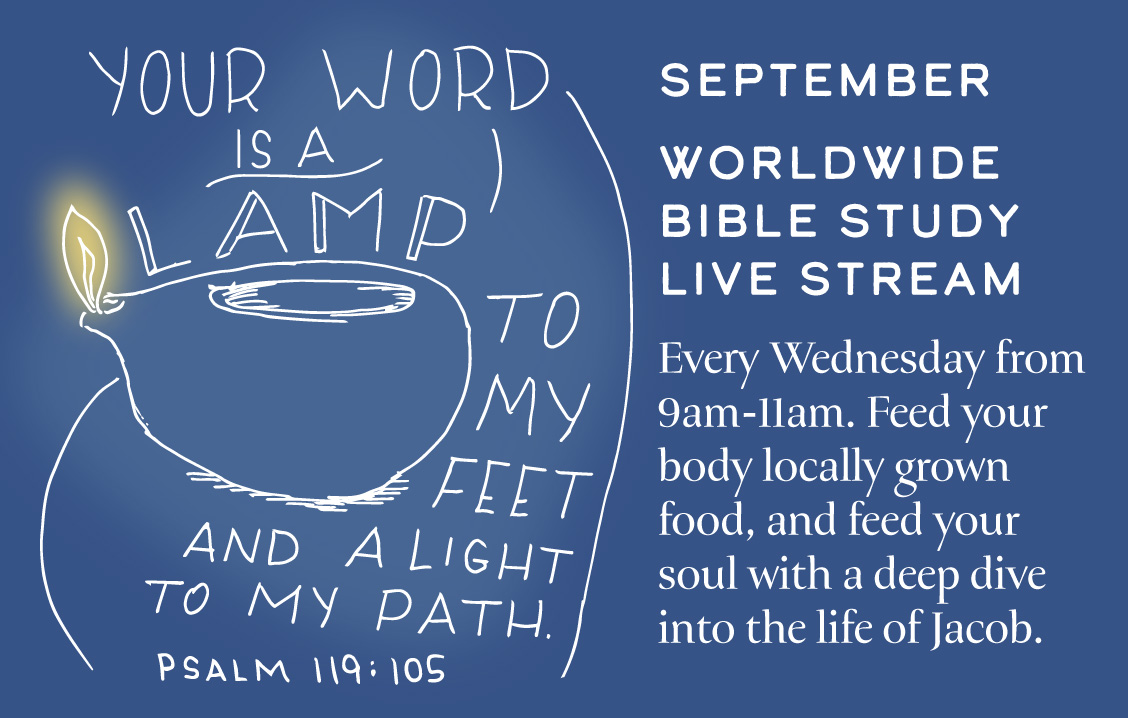 YOUR WORD
IS A
LAMP
TO
MY
FEET
AND A LIGHT
TO MY PATH.
PSALM 119:105
SEPTEMBER
WORLDWIDE
BIBLE STUDY
LIVE STREAM
Every Wednesday from
9am-11am. Feed your
body locally grown
food, and feed your
soul with a deep dive
into the life of Jacob.